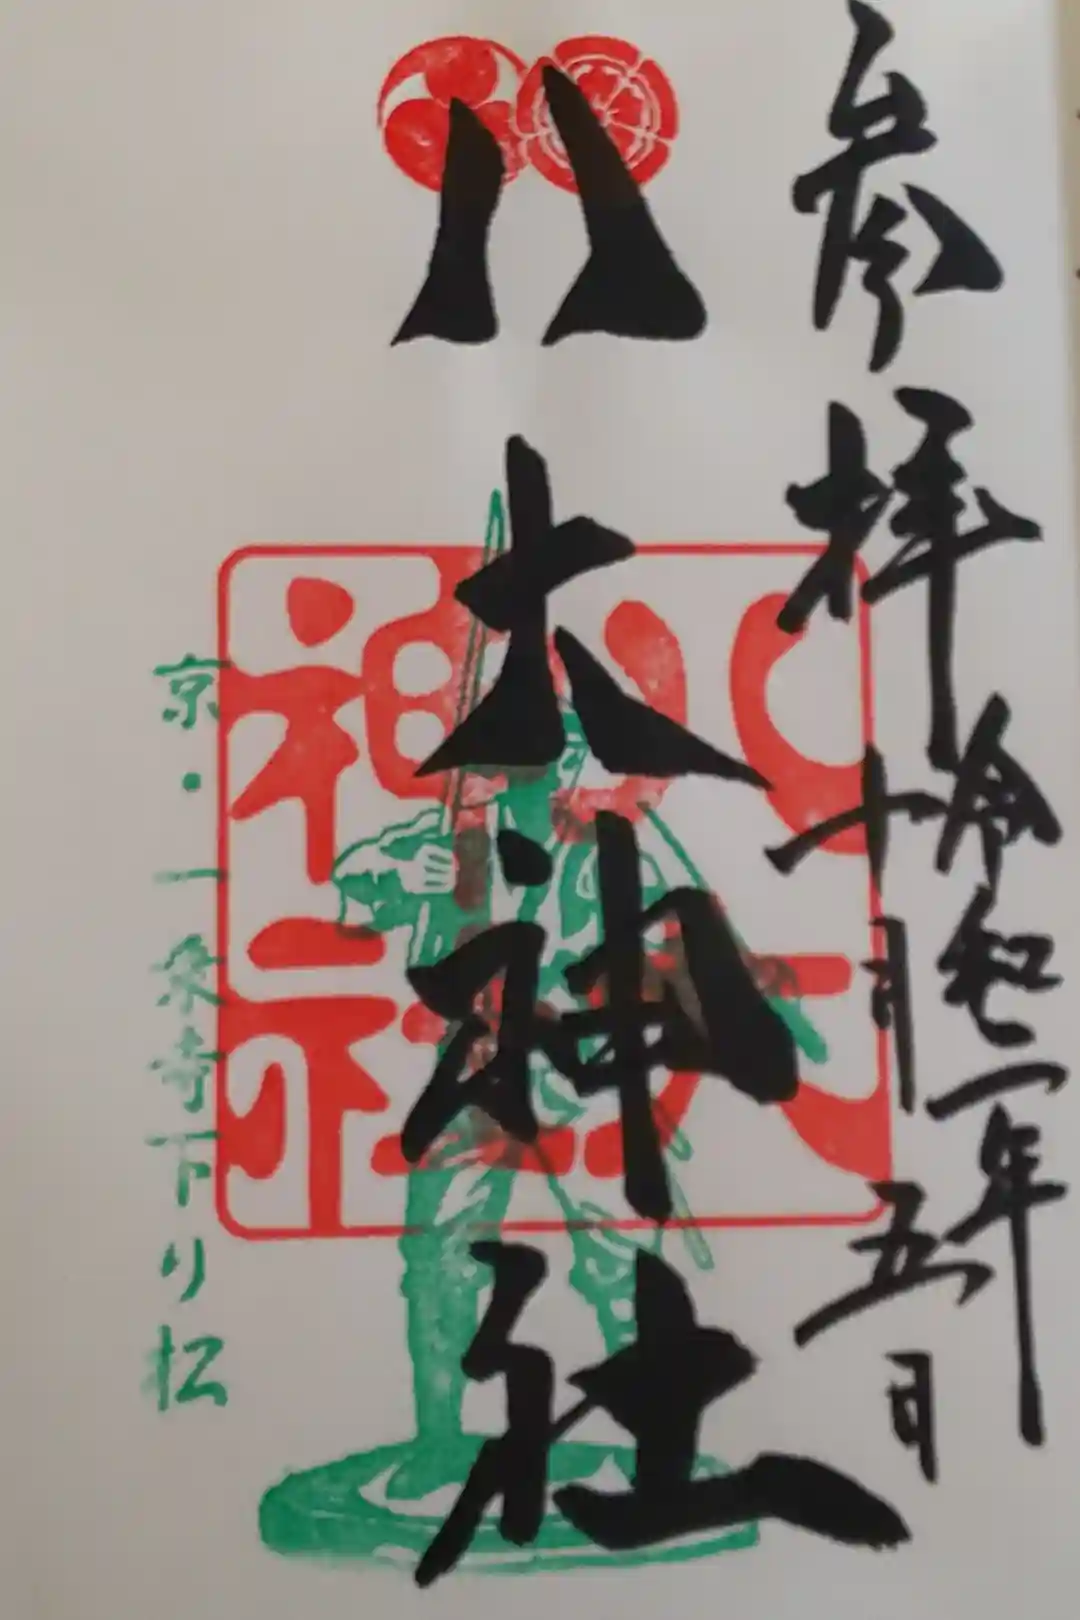 参拝
令和二年
十月五日
八大神社
八大神社
京・一乗寺下り松